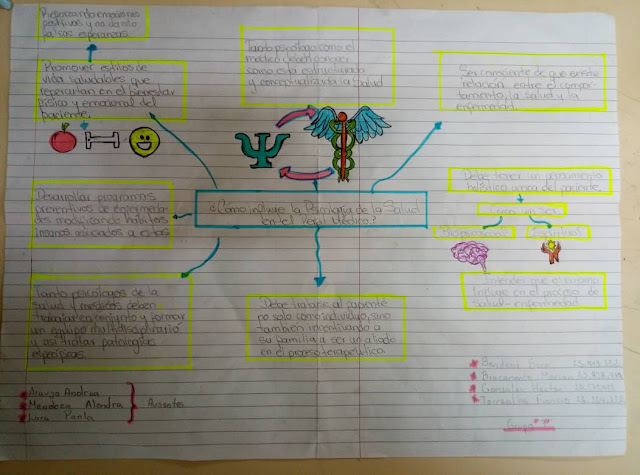 Reforzando emociones
positivas y no dando
falsas esperanzas
Promover estilos de
vida saludables que
repercutan en el bienestar
físico y emocional del
paciente.
Tanto psicólogo como el
médico deben conocer
como está estructurada
y conceptualizada la salud
Ser consciente de que existe
relación entre el compor-
tamiento, la salud y la
enfermedad.
Debe tener un pensamiento
holístico acerca del paciente.
Como un ser
Biopsicosocial
Espiritual
Entender que el
influye en el proceso de
salud-enfermedad
¿Cómo influye la Psicología de la Salud
en el Perfil Médico?
Desarrollar programas
preventivos de enfermeda-
des modificando hábitos
insanos asociados a estas
Tanto psicólogos de la
salud y médicos deben
trabajar en conjunto y formar
un equipo multidisciplinario
y así tratar patologías
específicas.
Debe tratar al paciente
no solo como individuo, sino
también incentivando a
su familia a ser un aliado
en el proceso terapéutico.
Araujo Andrea
Mendoza Alondra
Lucu Paola
Ausentes
Grupo